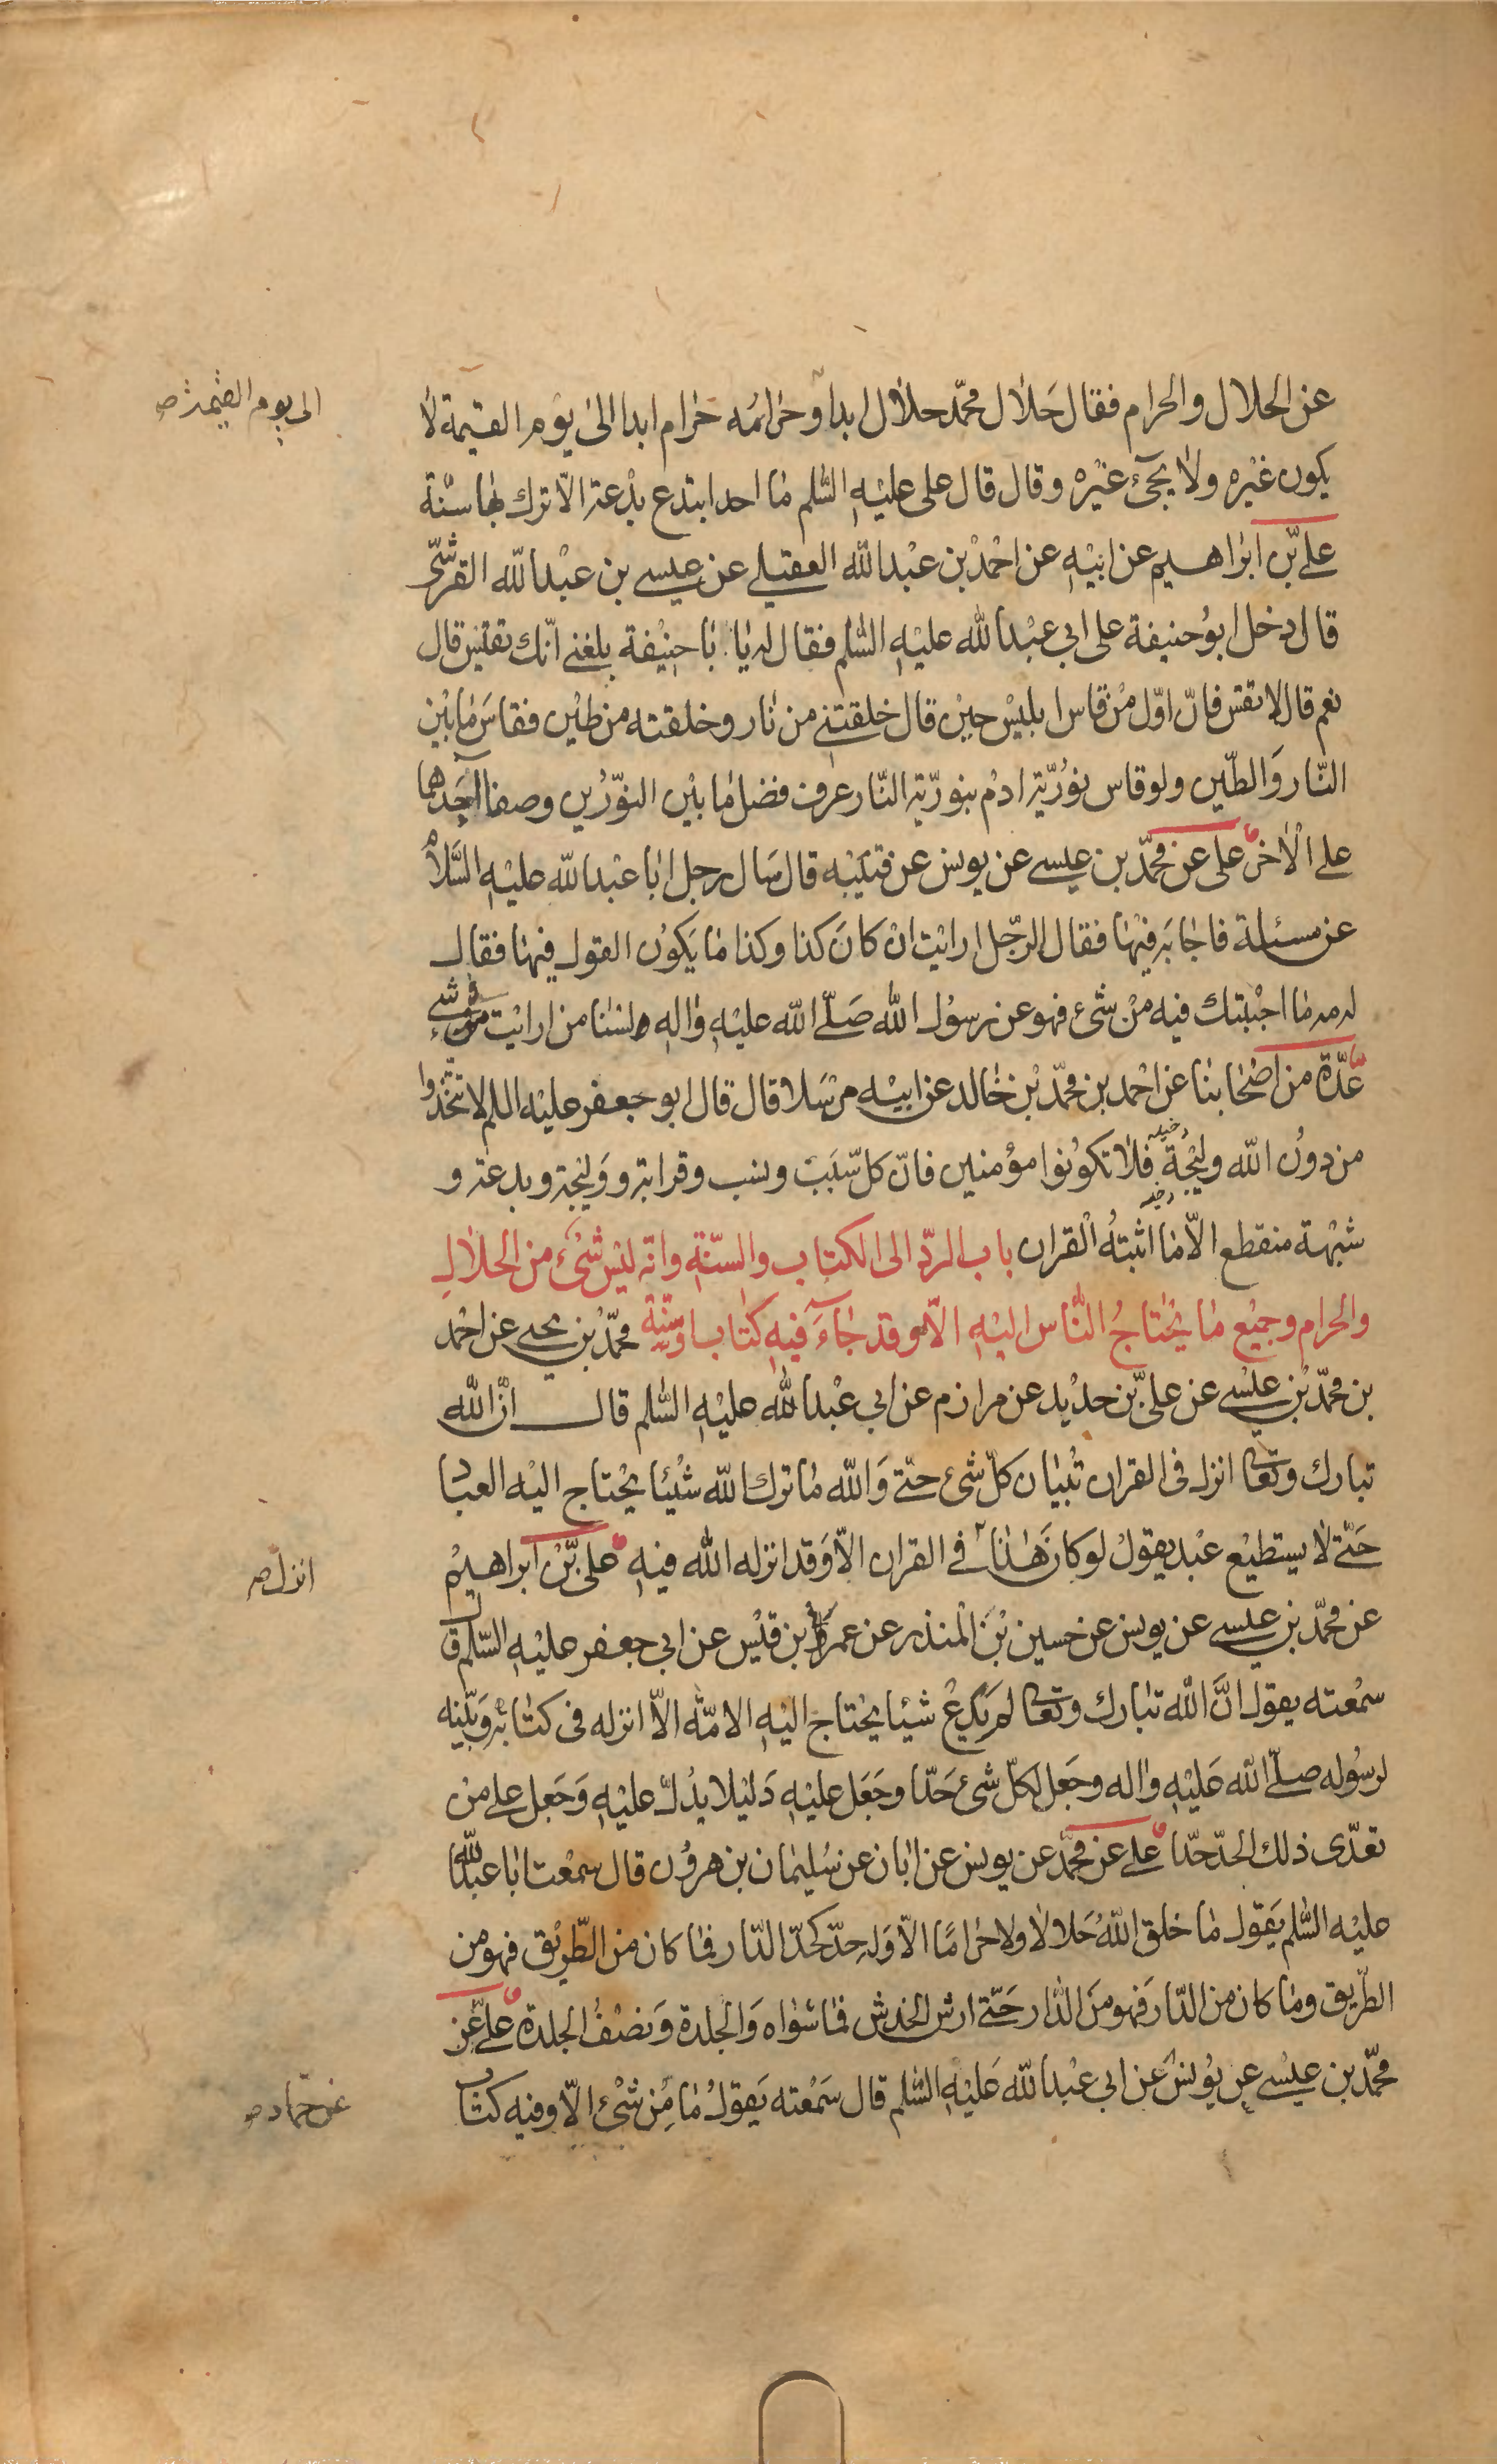 عن الحلال والحرام فقال حَلال محمّد حلال ابدا وحرامُه حرام ابدا الى يوم القيمة لا
الى يوم القيمة ص
يكون غيره ولا يجىٔ غيره وقال قال على عليه السّلم ما احد ابتدع بدعة الّا ترك بها سنّة
علىّ بن ابراهيم عن ابيه عن احمد بن عبد الله العقيلى عن عيسى بن عبد الله القرشى
قال دخل ابو حنيفة على ابى عبد الله عليه السّلم فقال له يا با حنيفة بلغنى انّك تقيس قال
نعم قال لا تقس فانّ اوّل من قاس ابليس حين قال خلقتنى من نار وخلقته من طين فقاس ما بين
النّار والطّين ولو قاس نوريّة ادم بنوريّة النّار عرف فضل ما بين النّورين وصفا احدهما
على الاخر على عن محمّد بن عيسى عن يونس عن قتيبه قال سَال رجل ابا عبد الله عليه السَّلام
عن مسئلة فاجابه فيها فقال الرّجل ارايت ان كانَ كذا وكذا ما يكون القول فيها فقال
له مه ما اجبتك فيه من شىٔ فهو عن رسول الله صَلّى الله عليه واله لسنا من ارايت فى شىٔ
عدّة من اصحابنا عن احمد بن محمّد بن خالد عن ابيه مرسَلا قال قال ابو جعفر عليه السلم لا تتّخذوا
من دون الله وليجة فلا تكونوا مؤمنين فانّ كل سَبَب ونسب وقرابة ووليجة وبدعة و
شبهة منقطع الّا ما اثبتهُ القران باب الردّ الى الكتاب والسّنّة وانّه ليس شىٔ من الحلال
والحرام وجميع ما يحتاجُ النّاس اليه الّا وقد جآءَ فيه كتاب او سنّة محمّد بن يحيى عن احمد
بن محمّد بن عيسى عن علىّ بن حديد عن مرازم عن ابى عبد الله عليه السّلم قال انّ الله
تبارك وتعالى انزل فى القران تبيان كلّ شىٔ حتّى وَالله ما ترك الله شيئا يحتاج اليه العباد
حَتّى لا يستطيع عبد يقول لو كان هذا فى القران الّا وَقد انزله الله فيه على بن ابراهيم
انزل ص
عن محمّد بن عيسى عن يونس عن حسين بن المنذر عن عمر بن قيس عن ابى جعفر عليه السّلم قال
سمعته يقول انَّ الله تبارك وتعالى لم يَدع شيئا يحتاج اليه الامّة الّا انزله فى كتابه وبيّنه
لرسُوله صلّى الله عَليه واله وجعل لكلّ شىٔ حَدّا وجَعَل عليه دَليلا يدُلّ عليه وَجَعل على من
تعدّى ذلك الحدّ حدّا على عن محمّد عن يونس عن ابان عن سُليمان بن هرون قال سمعت ابا عبد الله
عليه السّلم يَقول ما خلق اللهُ حَلالا ولا حراما الّا وَله حدّ كحدّ الدّار فما كان من الطّريق فهو من
الطّريق وما كان من الدّار فهو منَ الدّار حَتّى ارش الخدش فما سواه وَالجلدة وَنصفُ الجلدة علىّ عن
محمّد بن عيسى عن يونس عن ابى عبد الله عَليه السّلم قال سَمعته يَقولُ ما من شىٔ الّا وفيه كتاب
عن حمّاد ص